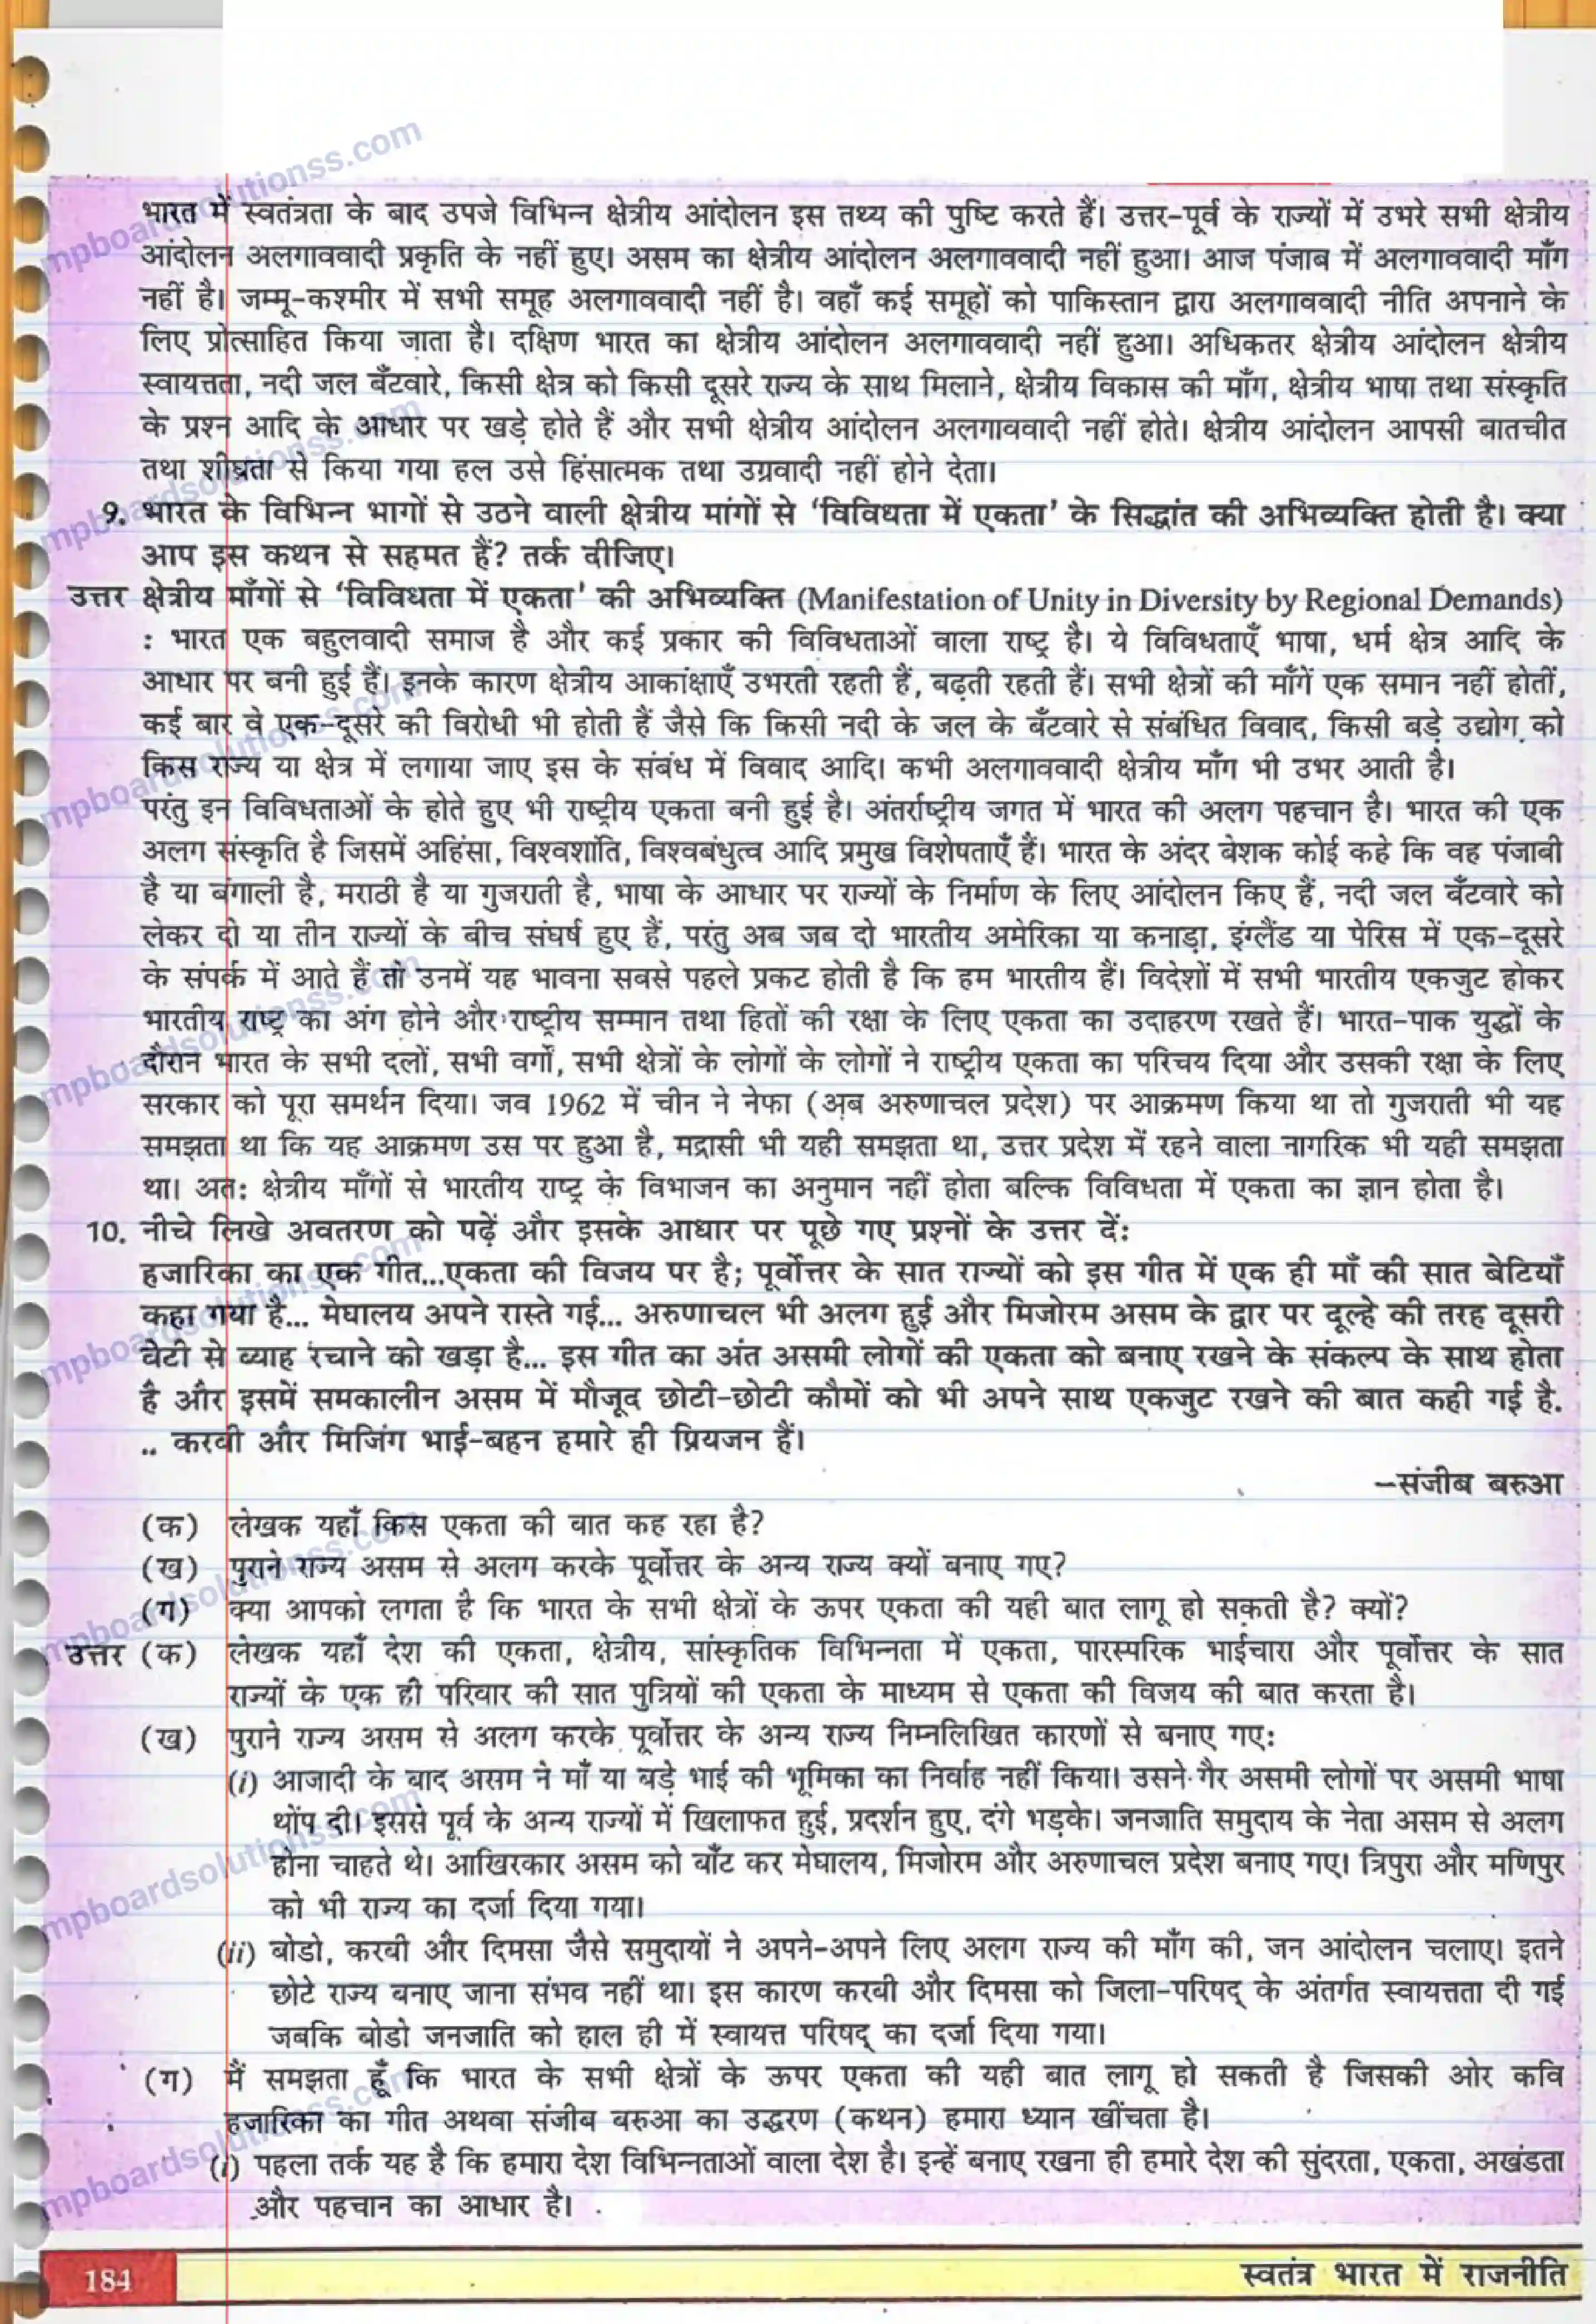 भारत में स्वतंत्रता के बाद उपजे विभिन्न क्षेत्रीय आंदोलन इस तथ्य की पुष्टि करते हैं। उत्तर-पूर्व के राज्यों में उभरे सभी क्षेत्रीय
आंदोलन अलगाववादी प्रकृति के नहीं हुए। असम का क्षेत्रीय आंदोलन अलगाववादी नहीं हुआ। आज पंजाब में अलगाववादी माँग
नहीं है। जम्मू-कश्मीर में सभी समूह अलगाववादी नहीं है। वहाँ कई समूहों को पाकिस्तान द्वारा अलगाववादी नीति अपनाने के
लिए प्रोत्साहित किया जाता है। दक्षिण भारत का क्षेत्रीय आंदोलन अलगाववादी नहीं हुआ। अधिकतर क्षेत्रीय आंदोलन क्षेत्रीय
स्वायत्तता, नदी जल बँटवारे, किसी क्षेत्र को किसी दूसरे राज्य के साथ मिलाने, क्षेत्रीय विकास की माँग, क्षेत्रीय भाषा तथा संस्कृति
के प्रश्न आदि के आधार पर खड़े होते हैं और सभी क्षेत्रीय आंदोलन अलगाववादी नहीं होते। क्षेत्रीय आंदोलन आपसी बातचीत
तथा शीघ्रता से किया गया हल उसे हिंसात्मक तथा उग्रवादी नहीं होने देता।
9. भारत के विभिन्न भागों से उठने वाली क्षेत्रीय मांगों से ‘विविधता में एकता’ के सिद्धांत की अभिव्यक्ति होती है। क्या
आप इस कथन से सहमत हैं? तर्क दीजिए।
उत्तर क्षेत्रीय माँगों से ‘विविधता में एकता’ की अभिव्यक्ति (Manifestation of Unity in Diversity by Regional Demands)
: भारत एक बहुलवादी समाज है और कई प्रकार की विविधताओं वाला राष्ट्र है। ये विविधताएँ भाषा, धर्म क्षेत्र आदि के
आधार पर बनी हुई हैं। इनके कारण क्षेत्रीय आकांक्षाएँ उभरती रहती हैं, बढ़ती रहती हैं। सभी क्षेत्रों की माँगें एक समान नहीं होतीं,
कई बार वे एक-दूसरे की विरोधी भी होती हैं जैसे कि किसी नदी के जल के बँटवारे से संबंधित विवाद, किसी बड़े उद्योग को
किस राज्य या क्षेत्र में लगाया जाए इस के संबंध में विवाद आदि। कभी अलगाववादी क्षेत्रीय माँग भी उभर आती है।
परंतु इन विविधताओं के होते हुए भी राष्ट्रीय एकता बनी हुई है। अंतर्राष्ट्रीय जगत में भारत की अलग पहचान है। भारत की एक
अलग संस्कृति है जिसमें अहिंसा, विश्वशांति, विश्वबंधुत्व आदि प्रमुख विशेषताएँ हैं। भारत के अंदर बेशक कोई कहे कि वह पंजाबी
है या बंगाली है, मराठी है या गुजराती है, भाषा के आधार पर राज्यों के निर्माण के लिए आंदोलन किए हैं, नदी जल बँटवारे को
लेकर दो या तीन राज्यों के बीच संघर्ष हुए हैं, परंतु अब जब दो भारतीय अमेरिका या कनाड़ा, इंग्लैंड या पेरिस में एक-दूसरे
के संपर्क में आते हैं तो उनमें यह भावना सबसे पहले प्रकट होती है कि हम भारतीय हैं। विदेशों में सभी भारतीय एकजुट होकर
भारतीय राष्ट्र का अंग होने और राष्ट्रीय सम्मान तथा हितों की रक्षा के लिए एकता का उदाहरण रखते हैं। भारत-पाक युद्धों के
दौरान भारत के सभी दलों, सभी वर्गों, सभी क्षेत्रों के लोगों के लोगों ने राष्ट्रीय एकता का परिचय दिया और उसकी रक्षा के लिए
सरकार को पूरा समर्थन दिया। जव 1962 में चीन ने नेफा (अब अरुणाचल प्रदेश) पर आक्रमण किया था तो गुजराती भी यह
समझता था कि यह आक्रमण उस पर हुआ है, मद्रासी भी यही समझता था, उत्तर प्रदेश में रहने वाला नागरिक भी यही समझता
था। अत: क्षेत्रीय माँगों से भारतीय राष्ट्र के विभाजन का अनुमान नहीं होता बल्कि विविधता में एकता का ज्ञान होता है।
10. नीचे लिखे अवतरण को पढ़ें और इसके आधार पर पूछे गए प्रश्नों के उत्तर दें:
हजारिका का एक गीत...एकता की विजय पर है; पूर्वोत्तर के सात राज्यों को इस गीत में एक ही माँ की सात बेटियाँ
कहा गया है... मेघालय अपने रास्ते गई... अरुणाचल भी अलग हुई और मिजोरम असम के द्वार पर दूल्हे की तरह दूसरी
बेटी से ब्याह रचाने को खड़ा है... इस गीत का अंत असमी लोगों की एकता को बनाए रखने के संकल्प के साथ होता
है और इसमें समकालीन असम में मौजूद छोटी-छोटी कौमों को भी अपने साथ एकजुट रखने की बात कही गई है.
.. करबी और मिजिंग भाई-बहन हमारे ही प्रियजन हैं।
–संजीब बरुआ
(क) लेखक यहाँ किस एकता की बात कह रहा है?
(ख) पुराने राज्य असम से अलग करके पूर्वोत्तर के अन्य राज्य क्यों बनाए गए?
(ग) क्या आपको लगता है कि भारत के सभी क्षेत्रों के ऊपर एकता की यही बात लागू हो सकती है? क्यों?
उत्तर (क) लेखक यहाँ देश की एकता, क्षेत्रीय, सांस्कृतिक विभिन्नता में एकता, पारस्परिक भाईचारा और पूर्वोत्तर के सात
राज्यों के एक ही परिवार की सात पुत्रियों की एकता के माध्यम से एकता की विजय की बात करता है।
(ख) पुराने राज्य असम से अलग करके पूर्वोत्तर के अन्य राज्य निम्नलिखित कारणों से बनाए गए:
(i) आजादी के बाद असम ने माँ या बड़े भाई की भूमिका का निर्वाह नहीं किया। उसने गैर असमी लोगों पर असमी भाषा
थोंप दी। इससे पूर्व के अन्य राज्यों में खिलाफत हुई, प्रदर्शन हुए, दंगे भड़के। जनजाति समुदाय के नेता असम से अलग
होना चाहते थे। आखिरकार असम को बाँट कर मेघालय, मिजोरम और अरुणाचल प्रदेश बनाए गए। त्रिपुरा और मणिपुर
को भी राज्य का दर्जा दिया गया।
(ii) बोडो, करबी और दिमसा जैसे समुदायों ने अपने-अपने लिए अलग राज्य की माँग की, जन आंदोलन चलाए। इतने
छोटे राज्य बनाए जाना संभव नहीं था। इस कारण करबी और दिमसा को जिला-परिषद् के अंतर्गत स्वायत्तता दी गई
जबकि बोडो जनजाति को हाल ही में स्वायत्त परिषद् का दर्जा दिया गया।
(ग) मैं समझता हूँ कि भारत के सभी क्षेत्रों के ऊपर एकता की यही बात लागू हो सकती है जिसकी ओर कवि
हजारिका का गीत अथवा संजीब बरुआ का उद्धरण (कथन) हमारा ध्यान खींचता है।
(i) पहला तर्क यह है कि हमारा देश विभिन्नताओं वाला देश है। इन्हें बनाए रखना ही हमारे देश की सुंदरता, एकता, अखंडता
और पहचान का आधार है।
184
स्वतंत्र भारत में राजनीति
mpboardsolutionss.com
mpboardsolutionss.com
mpboardsolutionss.com
mpboardsolutionss.com
mpboardsolutionss.com
mpboardsolutionss.com
mpboardsolutionss.com
mpboardsolutionss.com